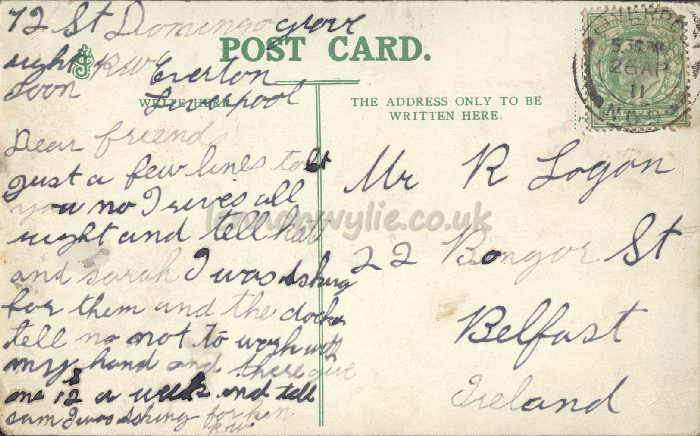 72 St Domingo grove
Everton
Liverpool
right
soon
POST CARD.
WRITE HERE
THE ADDRESS ONLY TO BE
WRITTEN HERE.
LIVERPOOL
26 AP
11
Dear friend
Just a few lines to let
you no I rives all
right and tell hat
and sarah I was asking
for them and the docter
tell no not to work with
my hand and there give
me 12 a week and tell
sam I was asking for him
Mr R Logan
22 Bangor St
Belfast
Ireland
lennoxwylie.co.uk